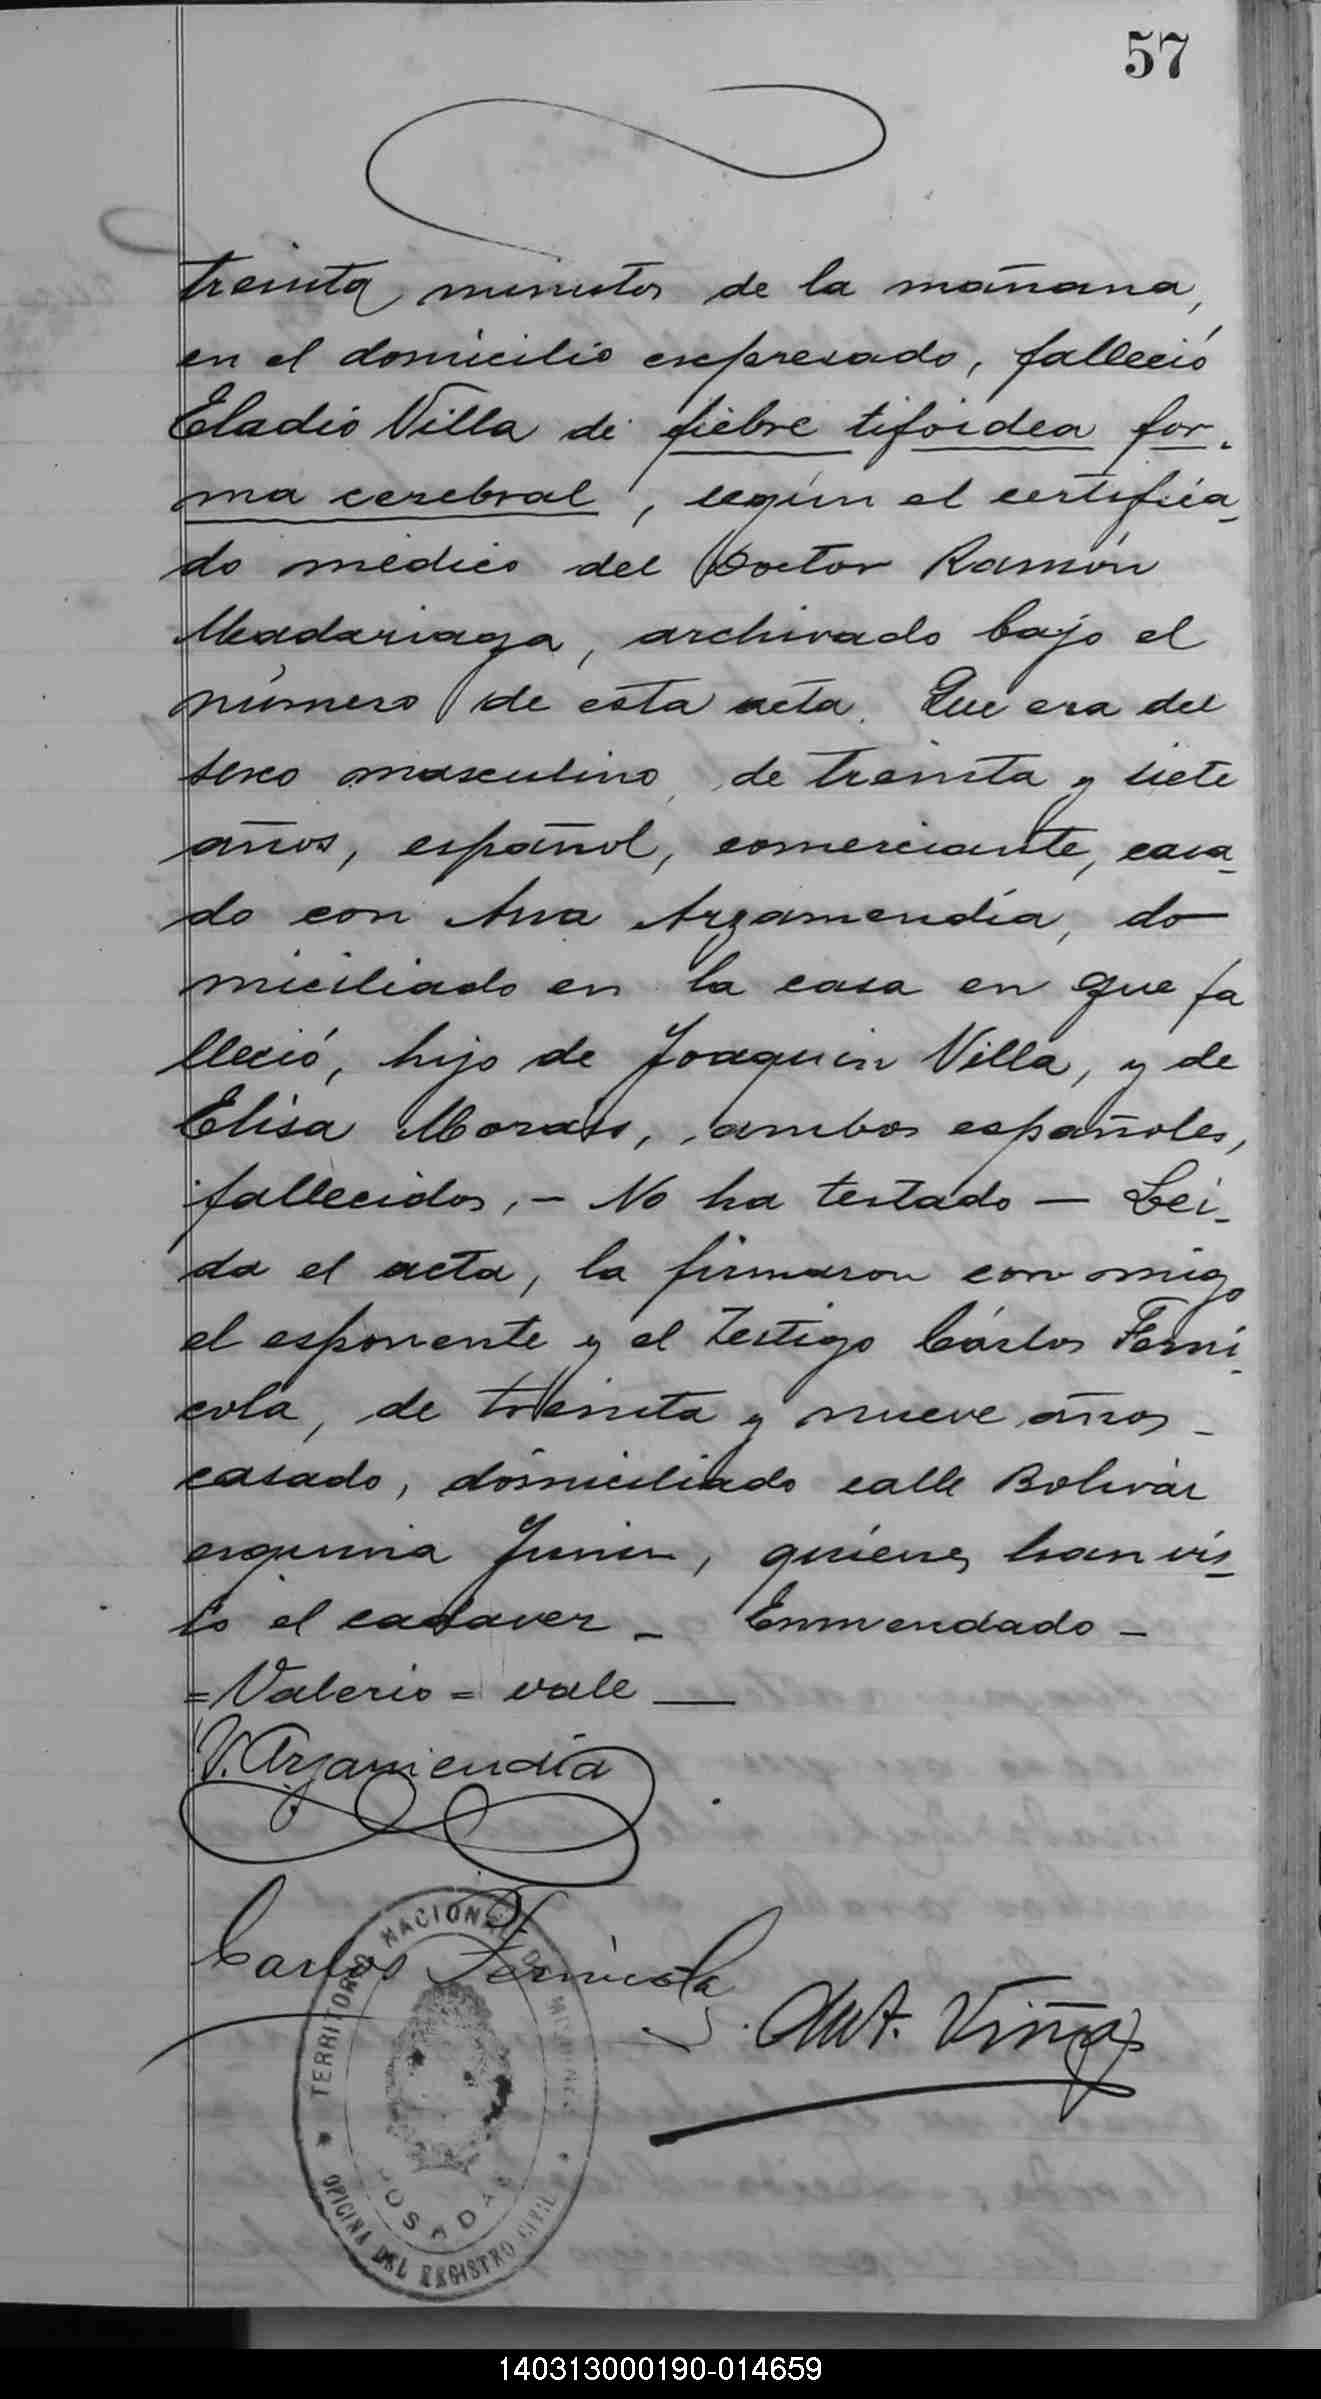 57
treinta minutos de la mañana,
en el domicilio expresado, falleció
Eladio Villa de fiebre tifoidea for-
ma cerebral, según el certifica-
do médico del Doctor Ramón
Madariaga, archivado bajo el
número de esta acta. Que era del
sexo masculino, de treinta y siete
años, español, comerciante, casa-
do con Ana Arzamendía, do
miciliado en la casa en que fa
lleció, hijo de Joaquin Villa, y de
Elisa Morais, ambos españoles,
fallecidos, - No ha testado — Lei-
da el acta, la firmaron con migo
el esponente y el testigo Cárlos Ferni-
cola, de treinta y nueve años -
casado, domiciliado calle Bolivar
esquina Junin, quienes han vis-
to el cadaver - Enmendado -
=Valerio= vale —
V. Arzamendia
Carlos Fernicola
S. Ant. Viñas
TERRITORIO NACIONAL DE MISIONES
POSADAS
OFICINA DEL REGISTRO CIVIL
140313000190-014659